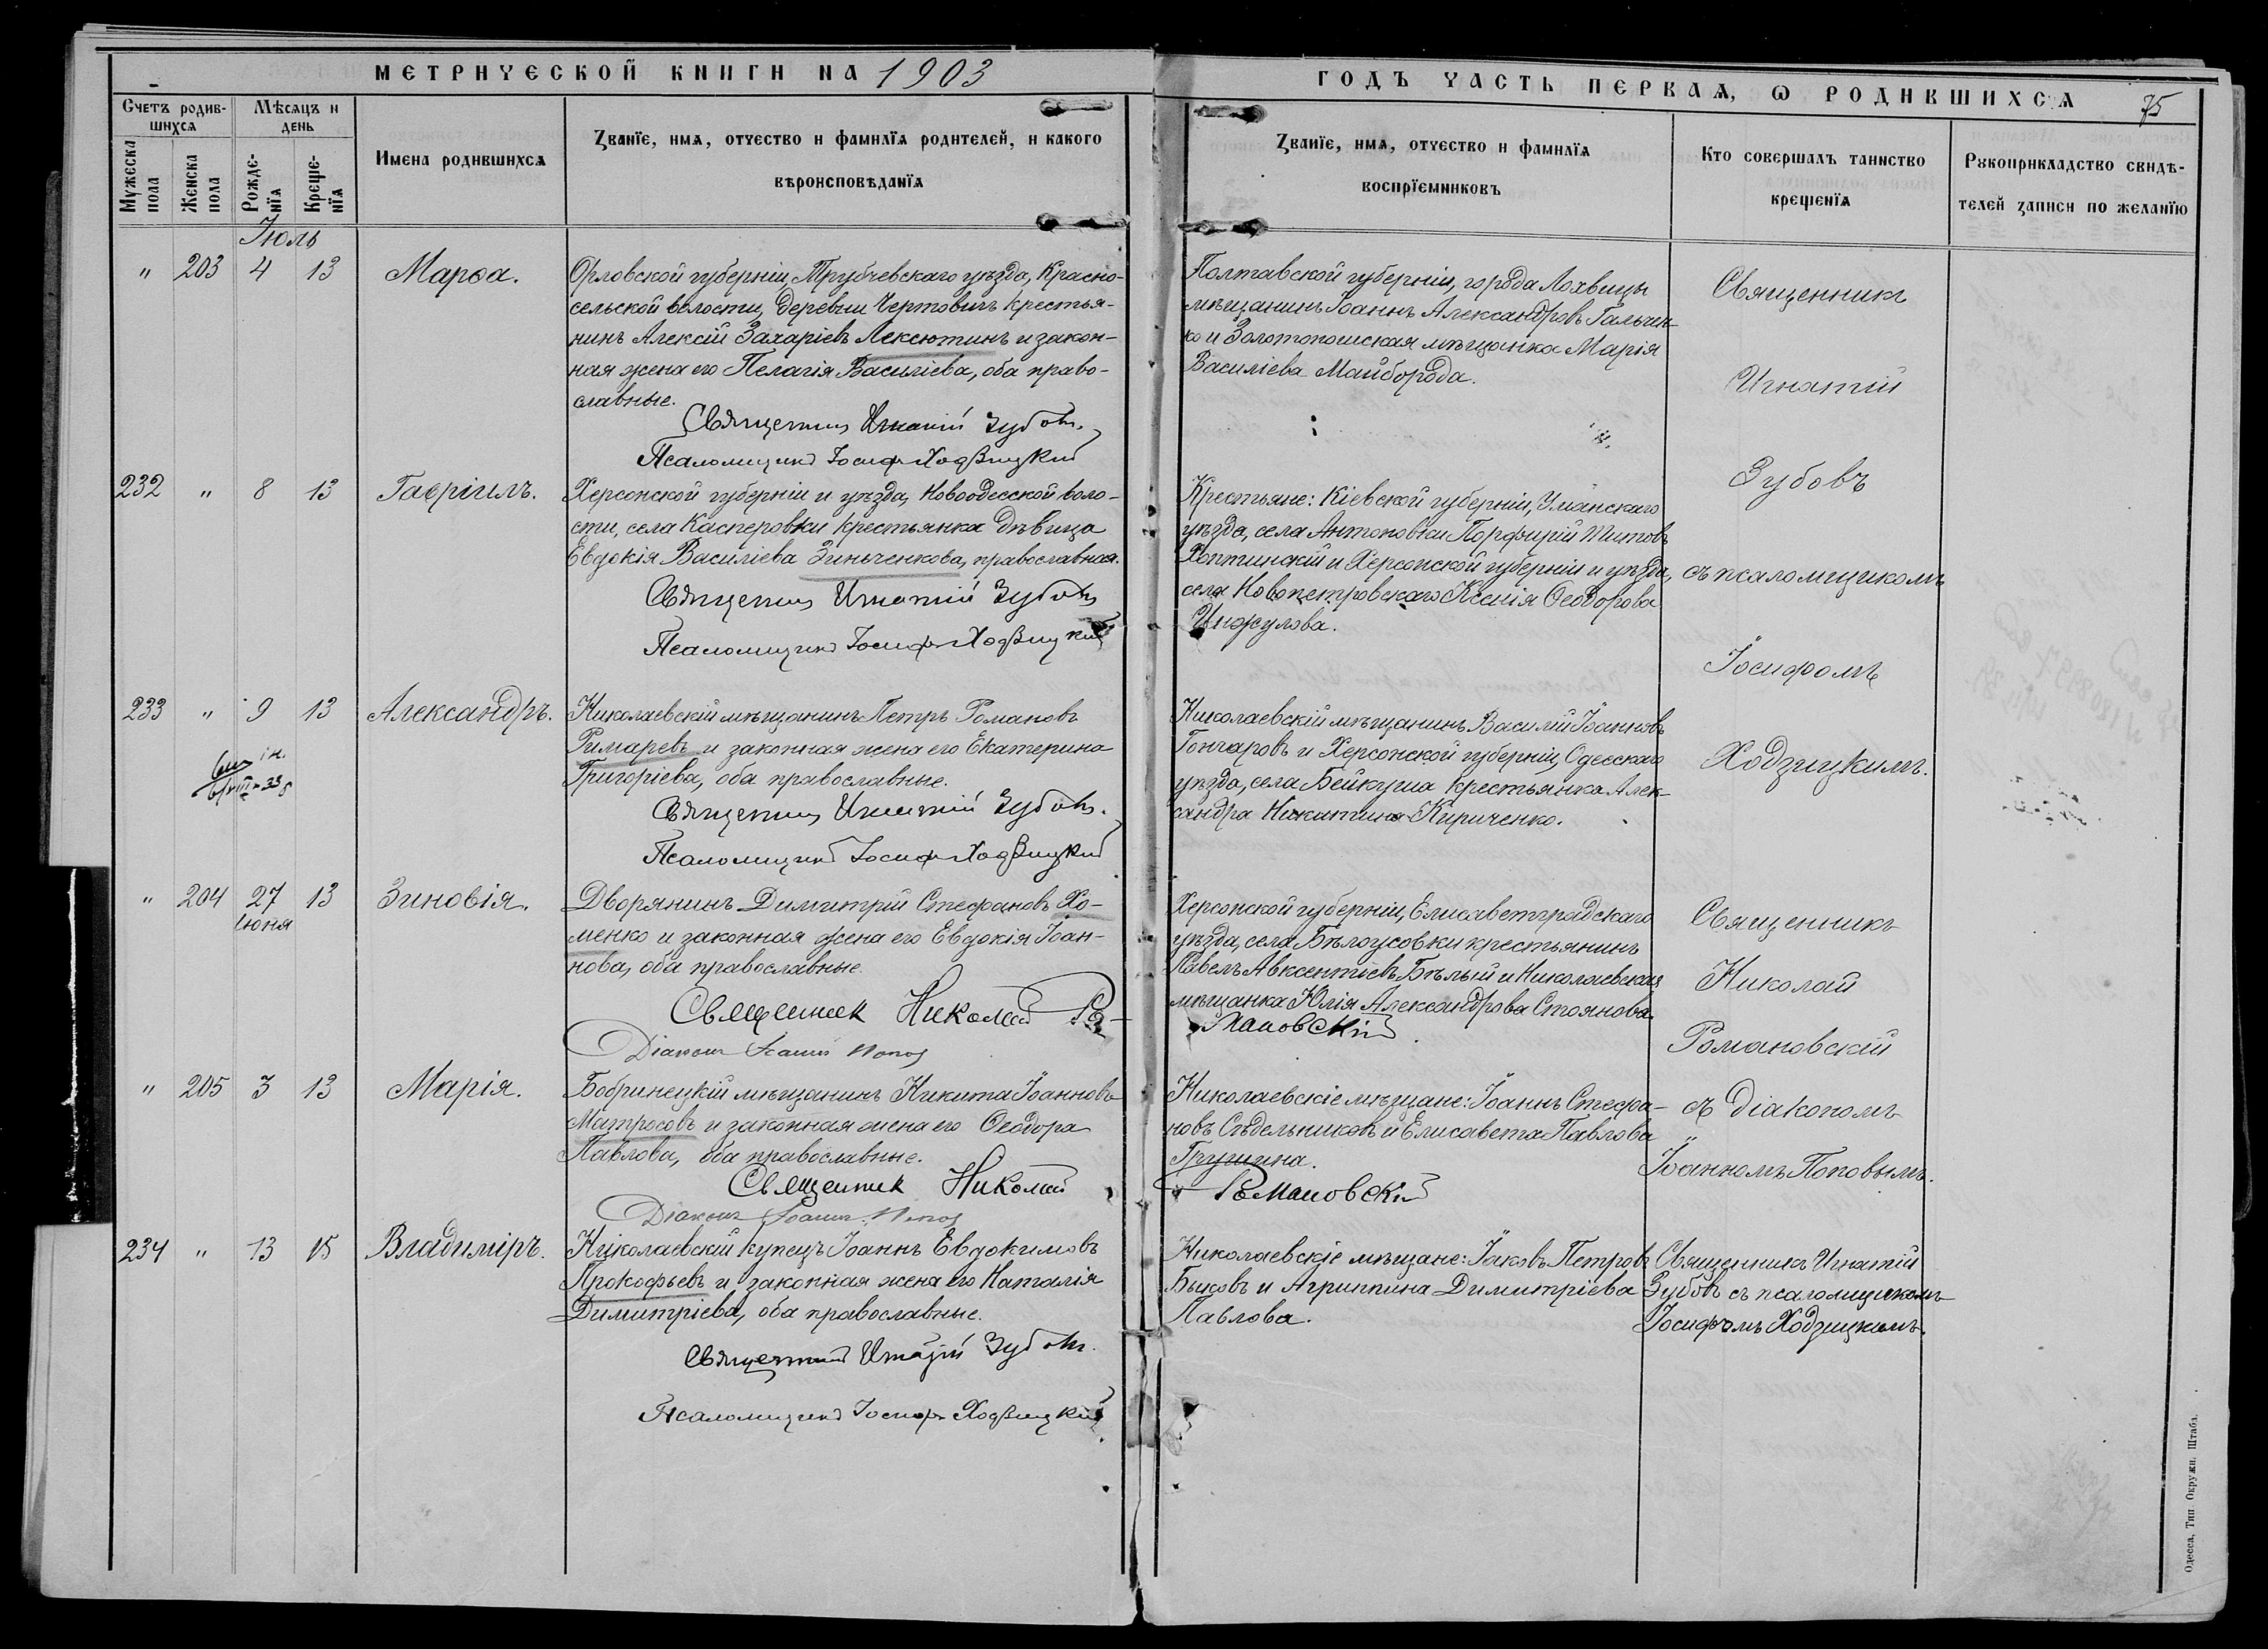 МЕТРИЧЕСКОЙ КНИГИ НА 1903
ГОДЪ ЧАСТЬ ПЕРВАЯ, Ѡ РОДИВШИХСЯ 75
Счетъ родив-
шихся
Мѣсяцъ и
день
Мужеска
пола
Женска
пола
Рожде-
нїя
Креще-
нїя
Имена родившихся
Званїе, имя, отчество и фамилїя родителей, и какого
вѣроисповѣданїя
Званїе, имя, отчество и фамилїя
воспрїемниковъ
Кто совершалъ таинство
крещенїя
Рукоприкладство свидѣ-
телей записи по желанїю
Июль
" 203 4 13 Марѳа.
Орловской губерніи, Трубчевскаго уѣзда, Красно-
сельской волости, деревни Чертовичъ крестья-
нинъ Алексій Захаріевъ Лексютинъ и закон-
ная жена его Пелагія Василіева, оба право-
славные.
Священникъ Игнатій Зубовъ.
Псаломщикъ Іосифъ Ходзицкій
Полтавской губерніи, города Лохвицы
мѣщанинъ Іоаннъ Александровъ Гальчен-
ко и Золотоношская мѣщанка Марія
Василіева Майборода.
Священникъ
Игнатій
Зубовъ
съ псаломщикомъ
Іосифомъ
Ходзицкимъ.
232 " 8 13 Гавріилъ.
Херсонской губерніи и уѣзда, Новоодесской воло-
сти, села Касперовки крестьянка дѣвица
Евдокія Василіева Зинченкова, православная.
Священникъ Игнатій Зубовъ
Псаломщикъ Іосифъ Ходзицкій
Крестьяне: Кіевской губерніи, Уманскаго
уѣзда, села Антоновки Порфирій Титовъ
Хоптинскій и Херсонской губерніи и уѣзда,
села Новопетровскаго Ксенія Ѳеодорова
233 " 9 13 Александръ.
Николаевскій мѣщанинъ Петръ Романовъ
Римаревъ и законная жена его Екатерина
Григоріева, оба православные.
Священникъ Игнатій Зубовъ.
Псаломщикъ Іосифъ Ходзицкій
Николаевскій мѣщанинъ Василій Іоанновъ
Гончаровъ и Херсонской губерніи, Одесскаго
уѣзда, села Бейкуша крестьянка Алек-
сандра Никитина Кириченко.
" 204 27 13 Зиновія.
Июня
Дворянинъ Димитрій Стефановъ Хо-
менко и законная жена его Евдокія Іоан-
нова, оба православные.
Священникъ Николай Ро-
мановскій
Діаконъ Іоаннъ Попов
Херсонской губерніи, Елисаветградскаго
уѣзда, села Бѣлоусовки крестьянинъ
Павелъ Авксентіевъ Бѣлый и Николаевская
мѣщанка Юлія Александрова Стоянова.
Священникъ
Николай
Романовскій
съ діакономъ
Іоанномъ Поповымъ.
" 205 3 13 Марія.
Бобринецкій мѣщанинъ Никита Іоанновъ
Матросовъ и законная жена его Ѳеодора
Павлова, оба православные.
Священникъ Николай Романовскій
Діаконъ Іоаннъ Попов
Николаевскіе мѣщане: Іоаннъ Стефа-
новъ Сѣдельниковъ и Елисавета Павлова
Грушина.
234 " 13 15 Владиміръ.
Николаевскій купецъ Іоаннъ Евдокимовъ
Прокофьевъ и законная жена его Наталія
Димитріева, оба православные.
Священникъ Игнатій Зубовъ.
Псаломщикъ Іосифъ Ходзицкій
Николаевскіе мѣщане: Іаковъ Петровъ
Быковъ и Агриппина Димитріева
Павлова.
Священникъ Игнатій
Зубовъ съ псаломщикомъ
Іосифомъ Ходзицкимъ.
Одесса, Тип. Окружн. Штаба.